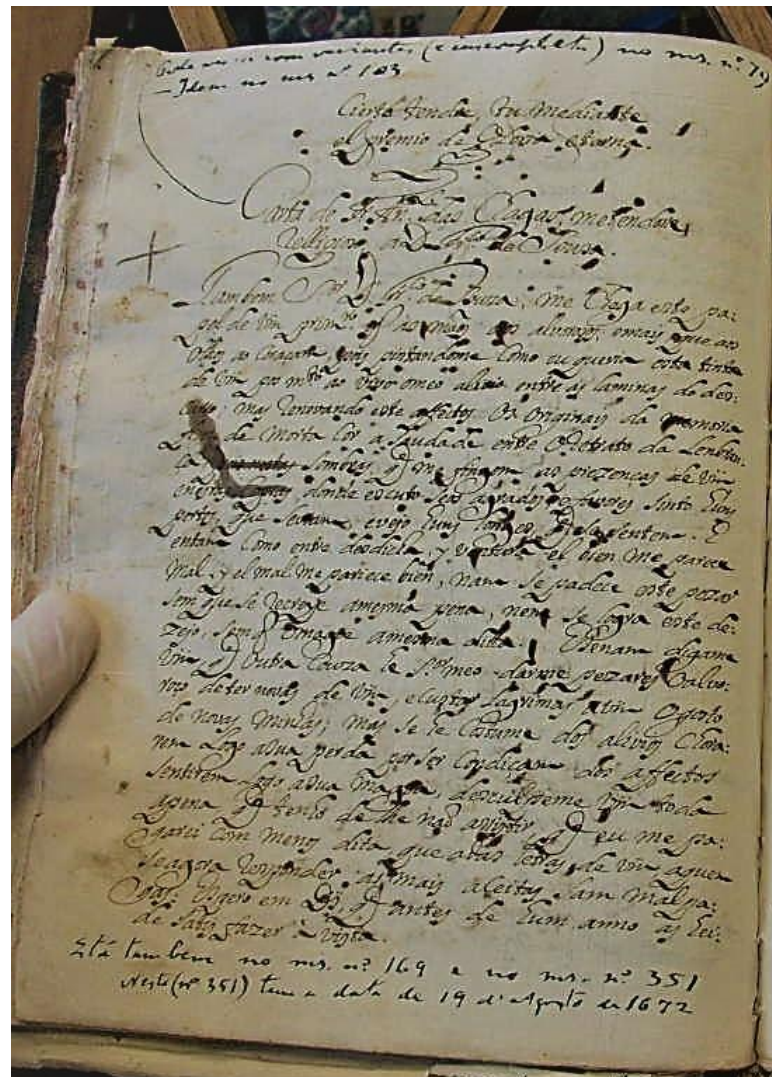 com variantes (e incompleta) no ms. nº 79
– Idem no ms nº 103
Cierto tendra, tu mediante
el premio de Gloria eterna.
Carta de Fr. Antº das Chagas, metendose
Relligioso, a D. frco de Souza.
Tambem Sor D. frco de Souza, me chega este pa-
pel de Vm primrº q̃ as mãos aos alvoroços, e mais que aos
olhos ao coraçam, pois pintandome como eu queria esta tinta
de Vm por mto ao vivo o meo alivio entre as laminas do des-
mas renovando este affecto os originais da memoria
de morta cor a saudade entre o retrato da lembran-
ça sombras, q̃ me fingem as prezenças de Vm
donde escuto seos agrados, e favores sinto huns
pertos, que se e vejo huns longes, q̃ se sentem. E
entam como entre desdicha, y ventura el bien me parece
mal, y el mal me parece bien, nam se padece este pezar
sem que se recreye a mesma pena, nem se logra este de-
zejo, sem q̃ a mesma dita. E senam digame
Vm, q̃ outra couza he Sor meo darme pezares o alvo-
roço de ter novas de Vm, e custar lagrimas a Vm o gosto
de novas minhas; mas se he costume dos alivios chora-
rem logo a sua perda por ser condiçam dos affectos
sentirem logo a sua magoa, Vm toda
a pena q̃ tenho de lhe nao assistir, q̃ eu me pa-
garei com menos dita que a das letras de Vm a quem
se agora responder as mais aceitas sam mal pa-
gas. Espero em Ds, q̃ antes de hum anno as hei
de satisfazer à vista.
Está tambem no ms. nº 169 e no ms. nº 351
Neste (nº 351) tem a data de 19 d'Agosto de 1672